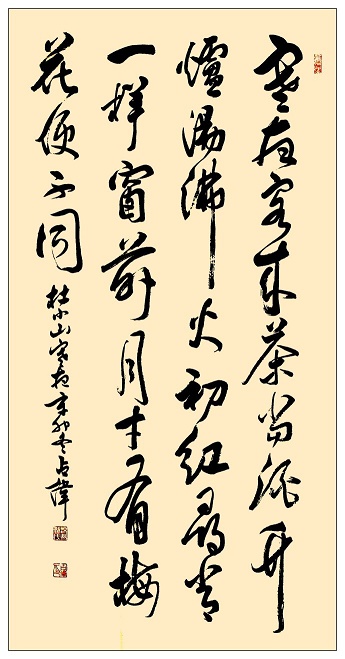 寒夜客來茶當酒竹
爐湯沸火初紅尋常
一樣窗前月才有梅
花便不同
杜小山寒夜辛卯冬占